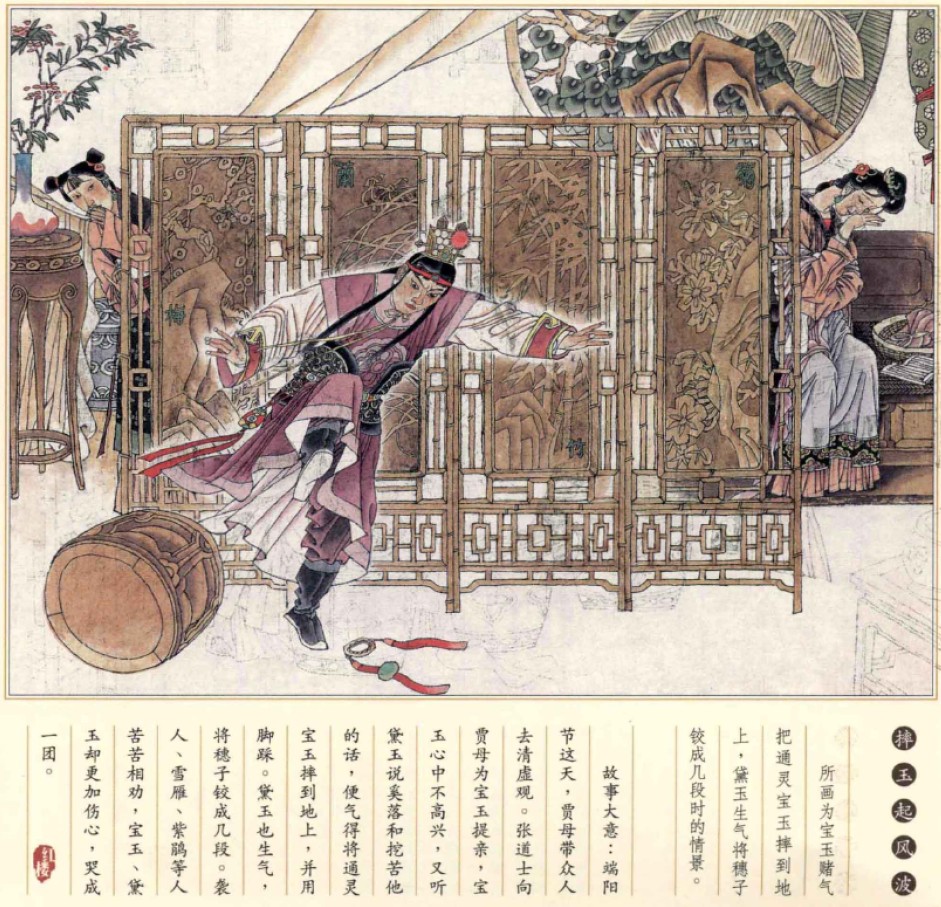 梅
蘭
竹
菊
摔玉起风波
所画为宝玉赌气
把通灵宝玉摔到地
上，黛玉生气将穗子
铰成几段时的情景。
故事大意：端阳
节这天，贾母带众人
去清虚观。张道士向
贾母为宝玉提亲，宝
玉心中不高兴，又听
黛玉说奚落和挖苦他
的话，便气得将通灵
宝玉摔到地上，并用
脚踩。黛玉也生气，
将穗子铰成几段。袭
人、雪雁、紫鹃等人
苦苦相劝，宝玉、黛
玉却更加伤心，哭成
一团。
红楼